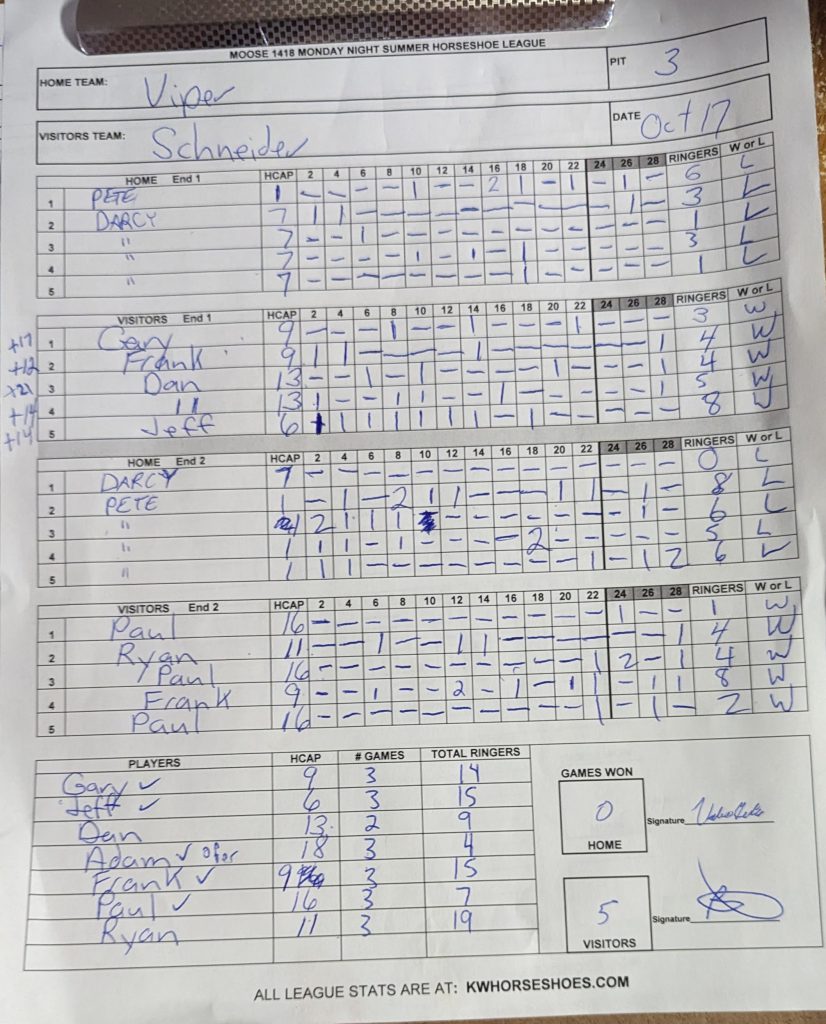 MOOSE 1418 MONDAY NIGHT SUMMER HORSESHOE LEAGUE
HOME TEAM: Viper PIT 3
VISITORS TEAM: Schneider DATE Oct 17
HOME End 1 HCAP 2 4 6 8 10 12 14 16 18 20 22 24 26 28 RINGERS W or L
1 PETE 1 - - - - 1 - - 2 1 - 1 - 1 - 6 L
2 DARCY 7 1 1 - - - - - - - - - - 1 - 3 L
3 " 7 - - 1 - - - - - - - - - - - 1 L
4 " 7 - - - - 1 - 1 - 1 - - - - - 3 L
5 " 7 - - - - - - - - 1 - - - - - 1 L
VISITORS End 1 HCAP 2 4 6 8 10 12 14 16 18 20 22 24 26 28 RINGERS W or L
+17 1 Gary 9 - - - 1 - - 1 - - - 1 - - - 3 W
+12 2 Frank 9 1 1 - - - - 1 - - - - - - 1 4 W
+21 3 Dan 13 - - 1 - 1 - - - - 1 - - - 1 4 W
+14 4 11 13 1 - - 1 1 - - 1 - - - - - 1 5 W
+14 5 Jeff 6 1 1 1 1 1 1 1 - 1 - - - - - 8 W
HOME End 2 HCAP 2 4 6 8 10 12 14 16 18 20 22 24 26 28 RINGERS W or L
1 DARCY 7 - - - - - - - - - - - - - - 0 L
2 PETE 1 - 1 - 2 1 1 - - - 1 1 - 1 - 8 L
3 " 1 2 1 1 1 - - - - - - - - 1 - 6 L
4 " 1 1 1 - 1 - - - - 2 - - - - - 5 L
5 " 1 1 1 - - - - - - - - 1 - 1 2 6 L
VISITORS End 2 HCAP 2 4 6 8 10 12 14 16 18 20 22 24 26 28 RINGERS W or L
1 Paul 16 - - - - - - - - - - - 1 - - 1 W
2 Ryan 11 - - 1 - - 1 1 - - - - - - 1 4 W
3 Paul 16 - - - - - - - - - - 1 2 - 1 4 W
4 Frank 9 - - 1 - - 2 - 1 - 1 1 - 1 1 8 W
5 Paul 16 - - - - - - - - - - 1 - 1 - 2 W
PLAYERS HCAP # GAMES TOTAL RINGERS
Gary ✓ 9 3 14
Jeff ✓ 6 3 15
Dan 13 2 9
Adam ✓ 18 3 4
Frank ✓ 9 3 15
Paul ✓ 16 3 7
Ryan 11 3 19
GAMES WON
0
HOME
Signature
5
VISITORS
Signature
ALL LEAGUE STATS ARE AT: KWHORSESHOES.COM